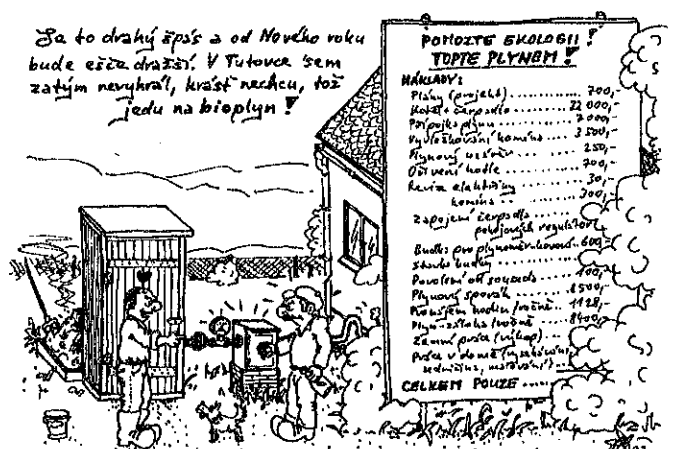 Je to drahý špás a od Nového roku
bude ešče dražší. V Tutovce sem
zatým nevyhrál, krást nechcu, tož
jedu na bioplyn!
POMOZTE EKOLOGII!
TOPTE PLYNEM!
NÁKLADY:
Plány (projekt) ........... 700,-
Kotel + čerpadlo ........ 22 000,-
Přípojka plynu ......... 7 000,-
Vyvložkování komína .... 3 500,-
Plynový uzávěr ....... 250,-
Oživení kotle ......... 700,-
Revize elektřiny ........ 30,-
komína .. ...... 300,-
Zapojení čerpadla
pokojových regulátorů
Budka pro plynoměr-kovová 600,-
Stavba budky
Povolení od souseda .... 100,-
Plynový sporák ..... 8500,-
Pronájem hodin/ročně .. 1128,-
Plyn-záloha/ročně .. 8400,-
Zemní práce (výkop)
Práce v domě (vysekávání,
zedničina,
CELKEM POUZE .....